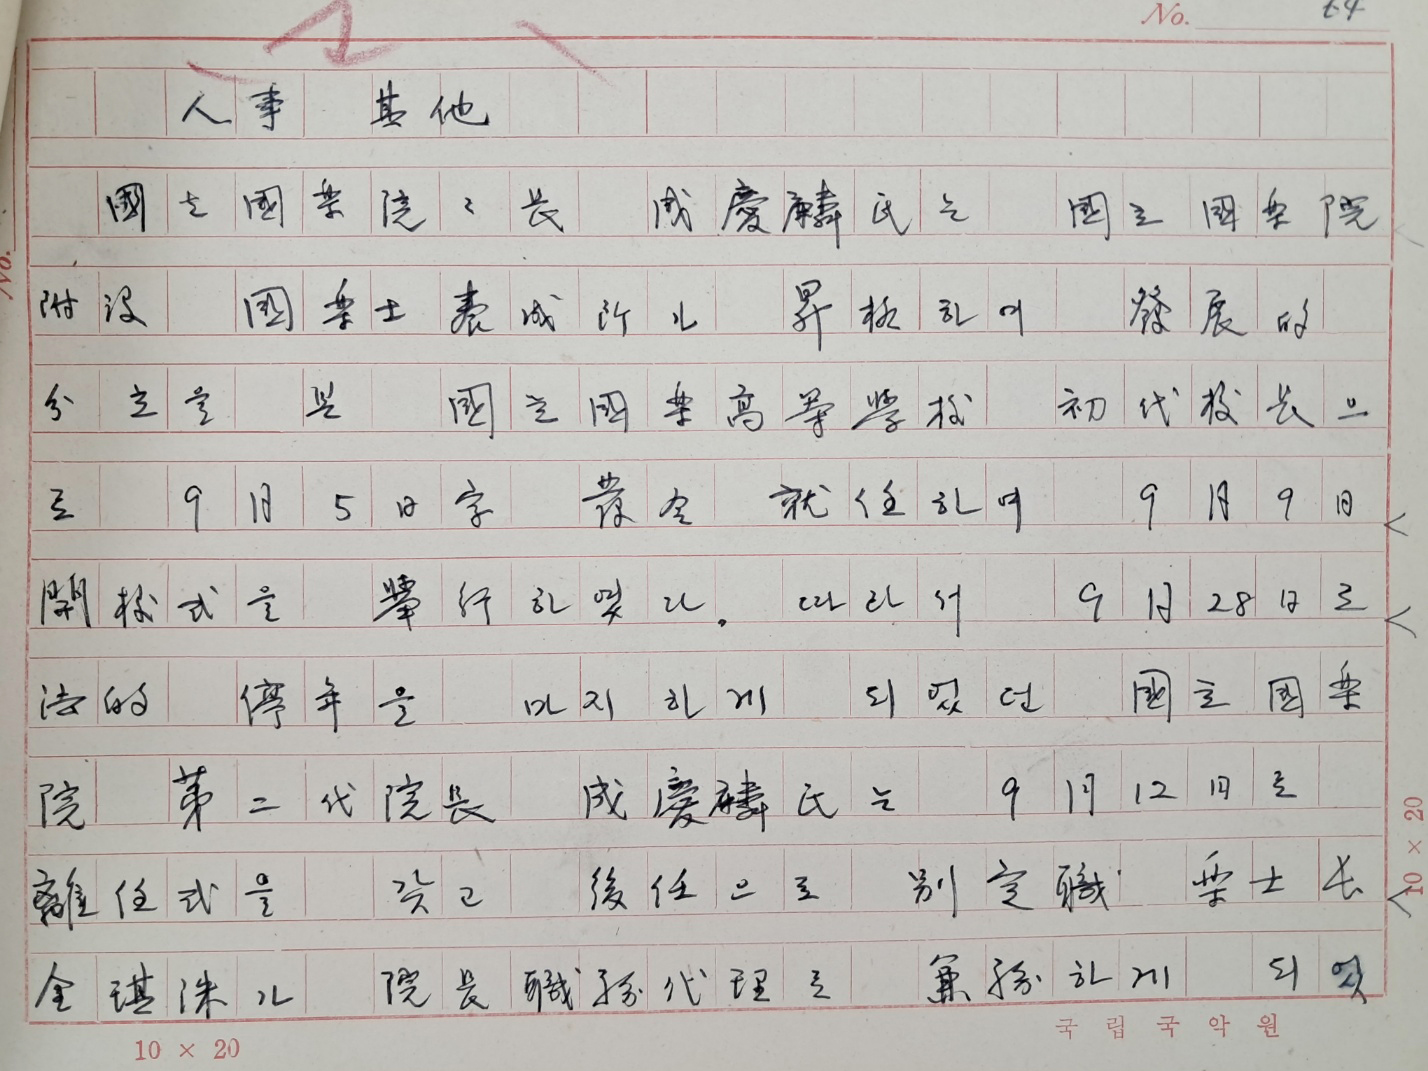 No. 64
人事 其他
國立國楽院々長 成慶麟氏는 國立國楽院
附設 國楽士養成所가 昇格하여 發展的
分立을 한 國立國楽高等學校 初代校長으
로 9月5日字 發令 就任하여 9月9日
開校式을 擧行하였다. 따라서 9月28日로
法的 停年을 마지하게 되었던 國立國楽
院 第二代院長 成慶麟氏는 9月12日로
離任式을 갖고 後任으로 別定職 楽士長
金琪洙가 院長職務代理로 兼務하게 되었
10 × 20
국립국악원
No.
10 × 20